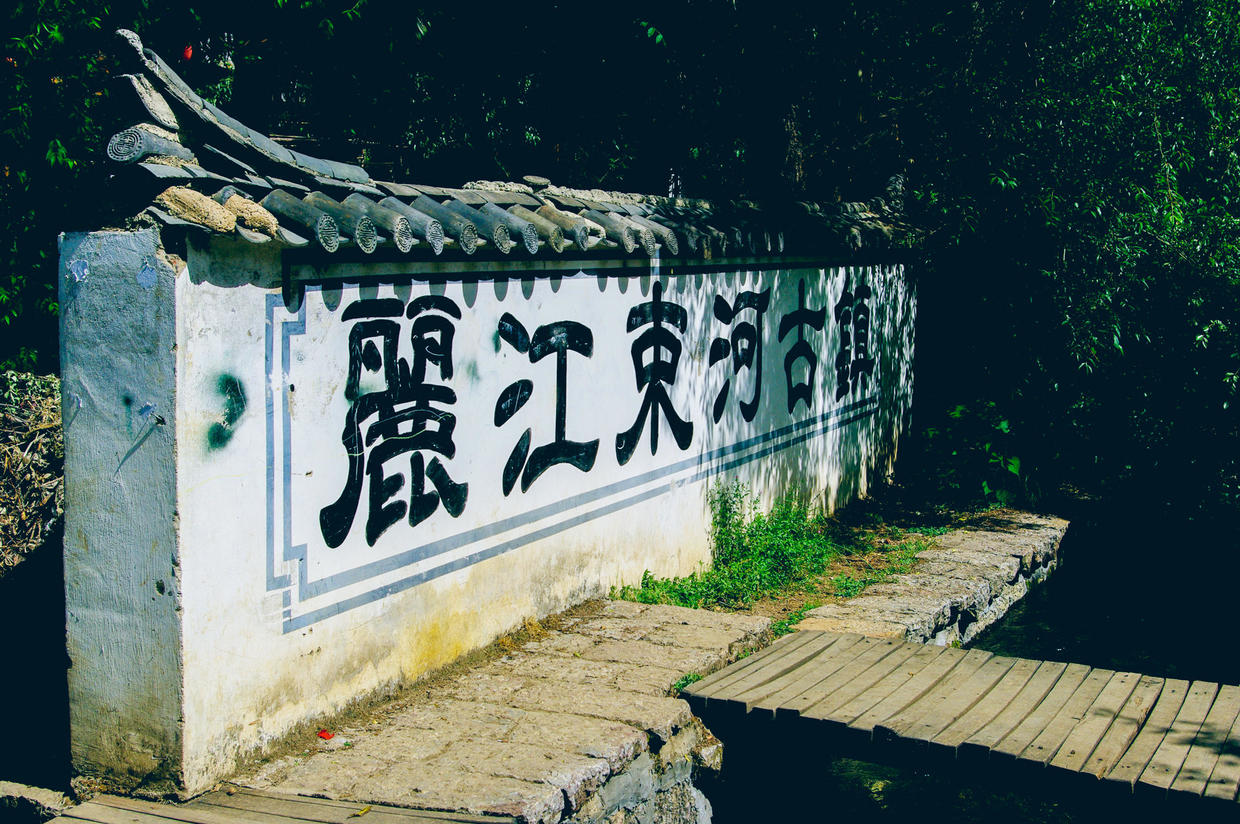 麗江東河古鎮